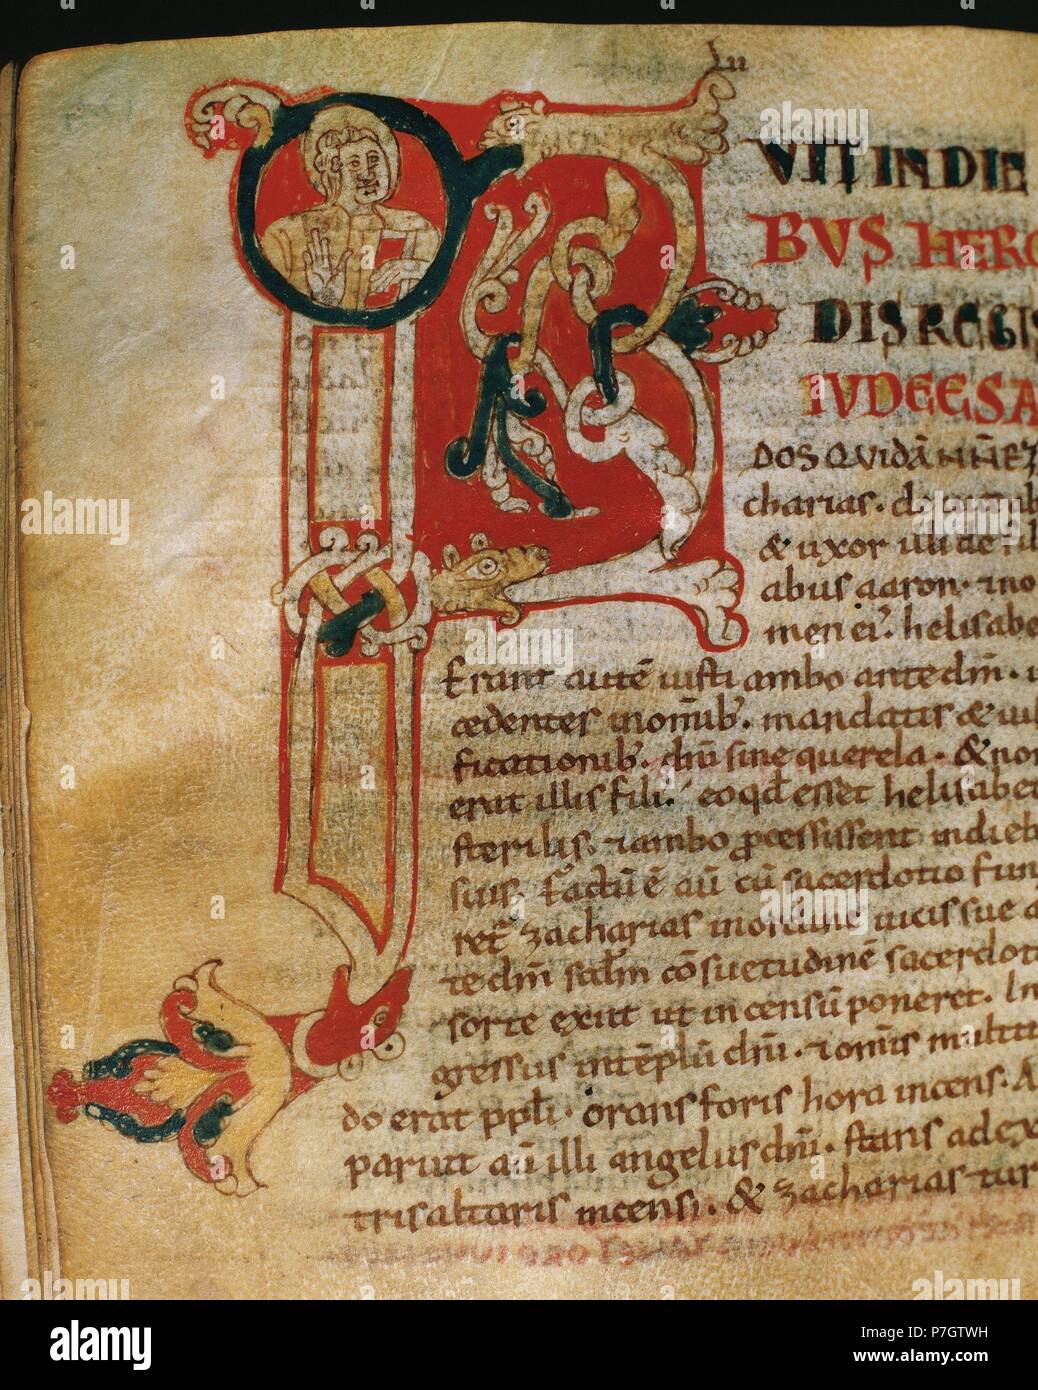 F
VIT IN DIE
BVS HERO
DIS REGIS
IVDEE SA
DOS QVIDĀ NŌE Z
charias. de
& uxor illi de fil
abus aaron. & no
men ei'. helisabe
Erant autē iusti ambo ante dm̄.
cedentes in om̄ib'. mandatis & iu
ficationib'. dn̄i sine querela. & non
erat illis fili'. eo qd esset helisabet
sterilis. & ambo ꝓcessissent in dieb
suis. Factū ē aū cū sacerdotio fun
ret' zacharias in ordine uicis sue a
te dm̄ scdm̄ cōsuetudinē sacerdot
sorte exiit ut incensū poneret. In
gressus in tēplū dn̄i. & om̄is multitu
do erat ppl̄i. orans foris hora incensi. A
paruit aū illi angelus dn̄i. stans a dex
tris altaris incensi. & zacharias tur
alamy
www.alamy.com
Image ID: P7GTWH